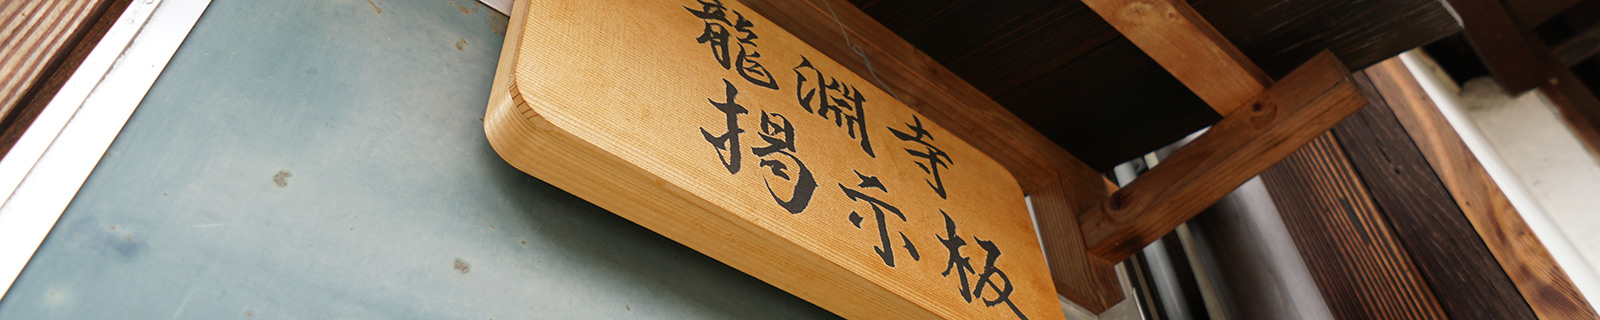 龍淵寺
掲示板